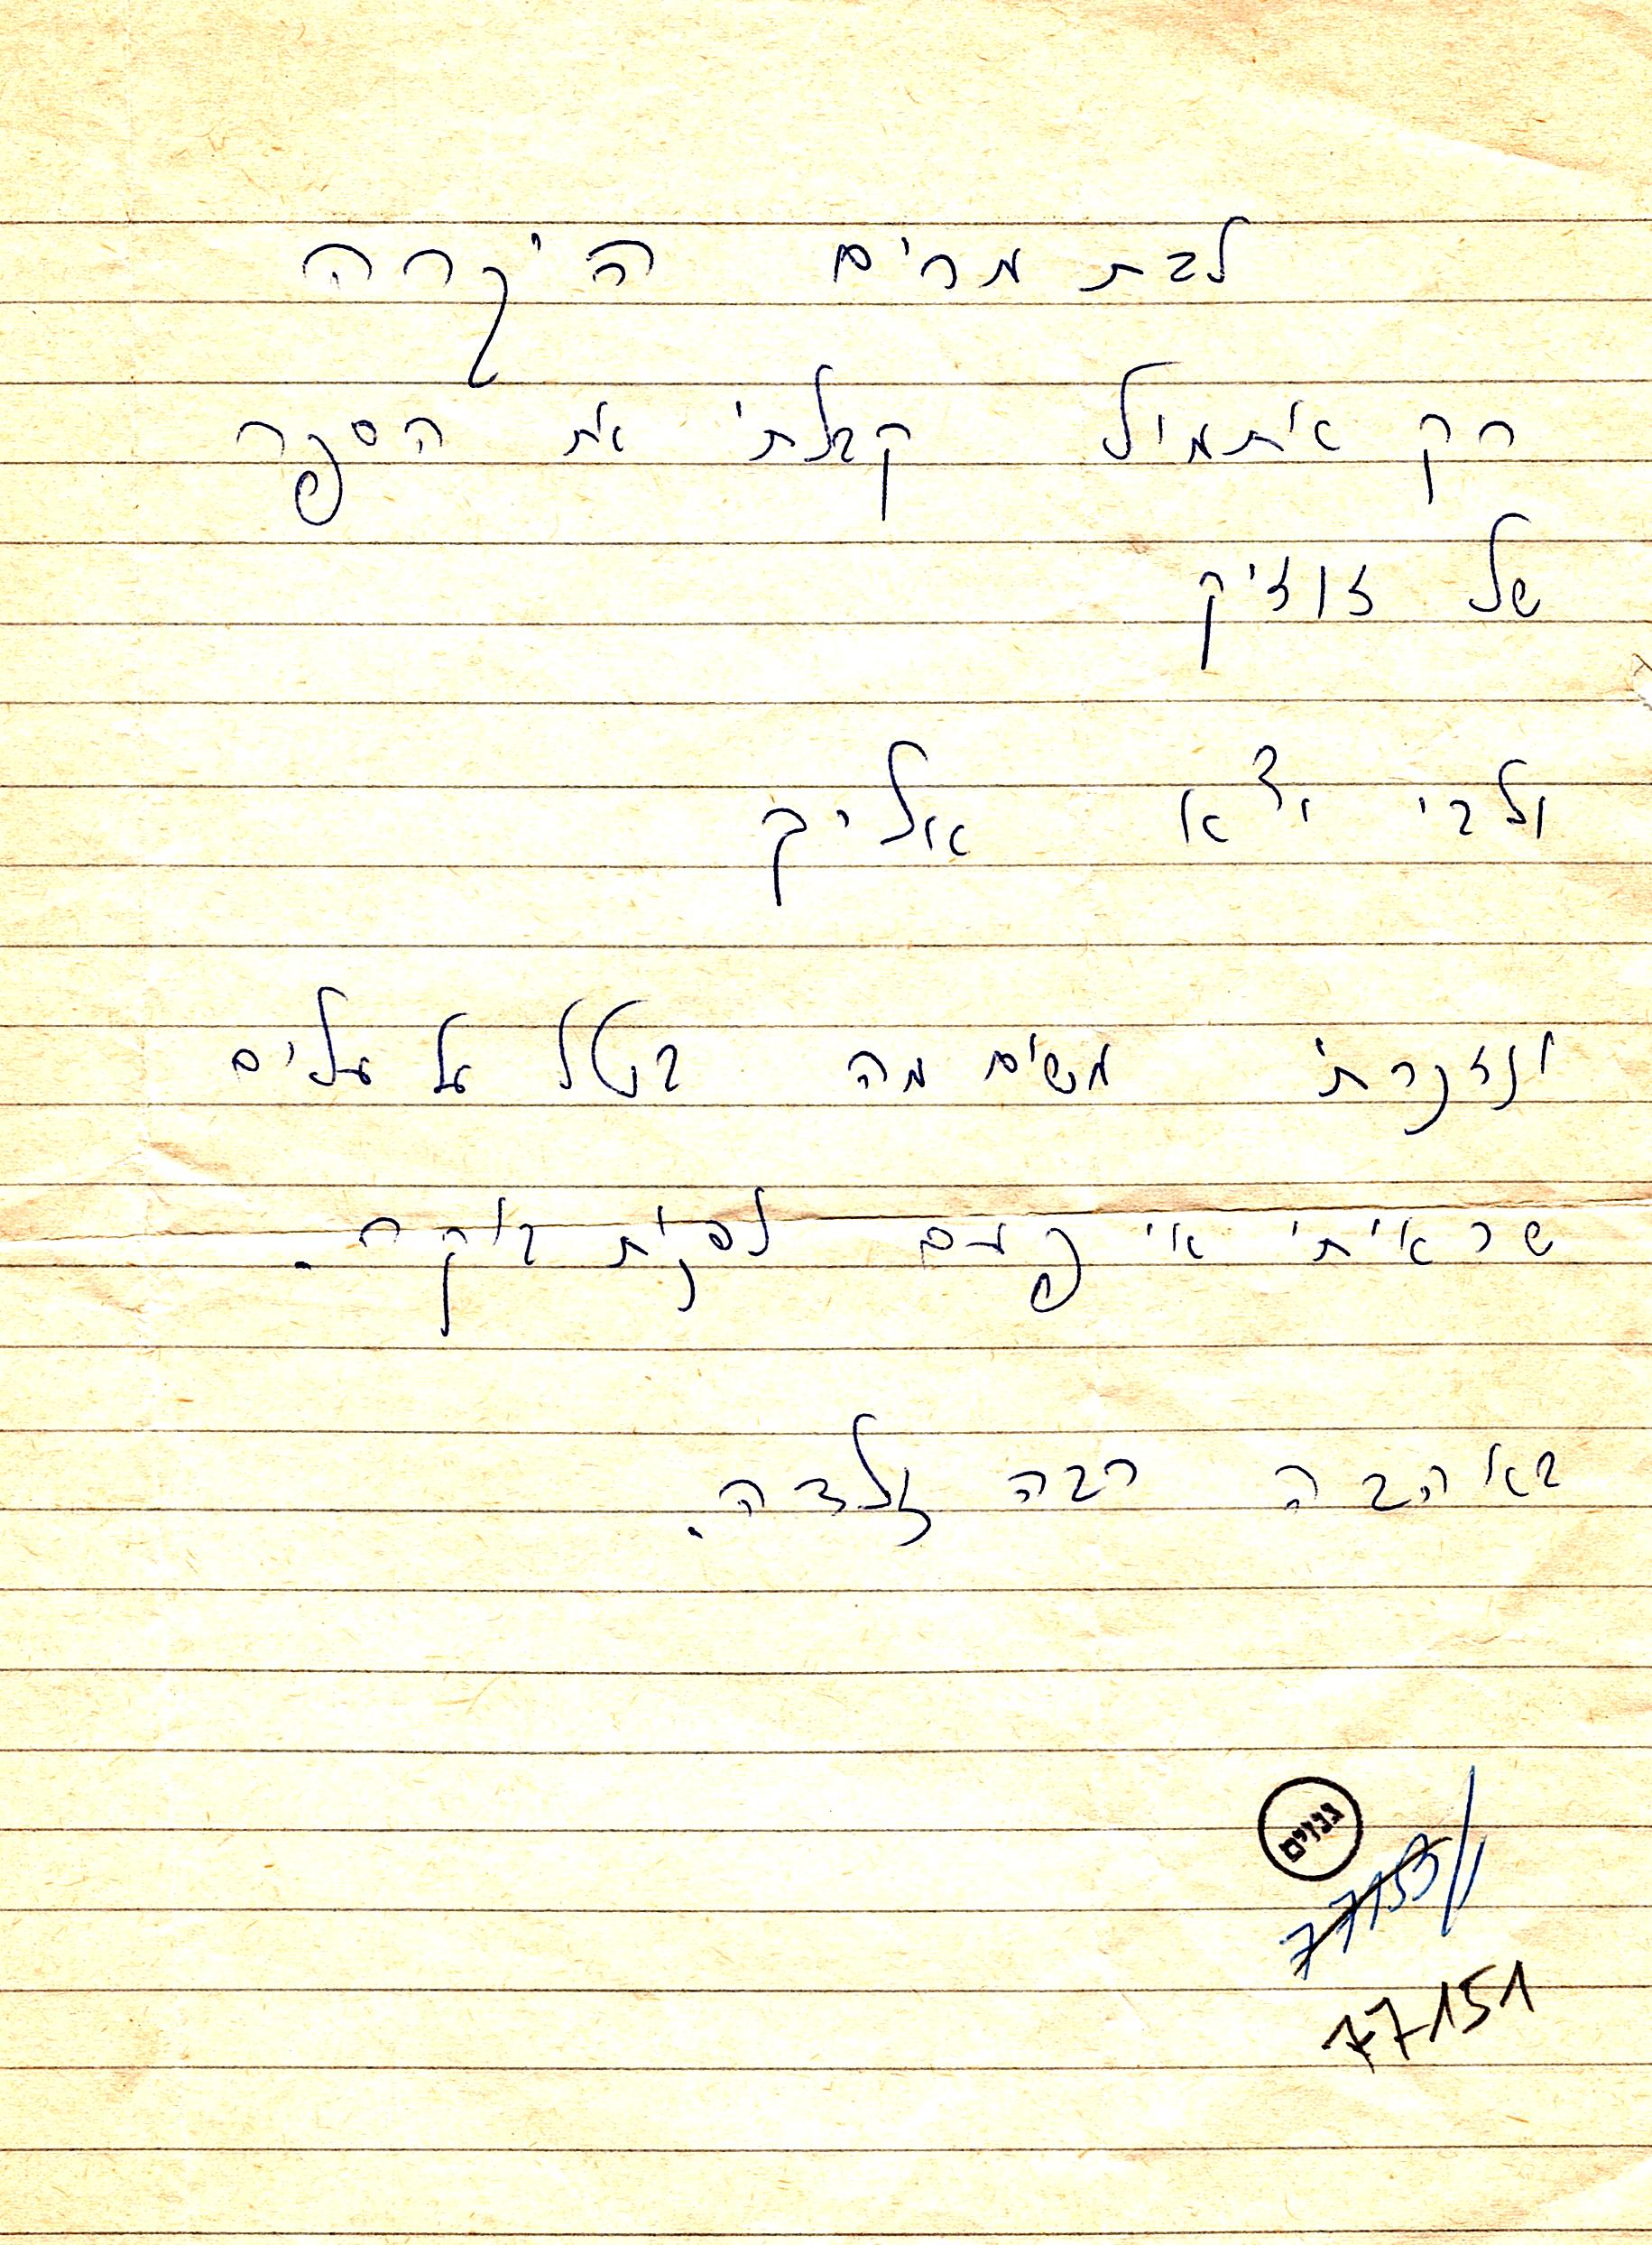 לבת מרים היקרה
רק אתמול קבלתי את הספר
של זוזיק
ולבי יצא אליך
ונזכרתי משום מה בטל על עלים
שראיתי אי פעם לפנות בוקר.
באהבה רבה זלדה.
גנזים
77153/1
77151